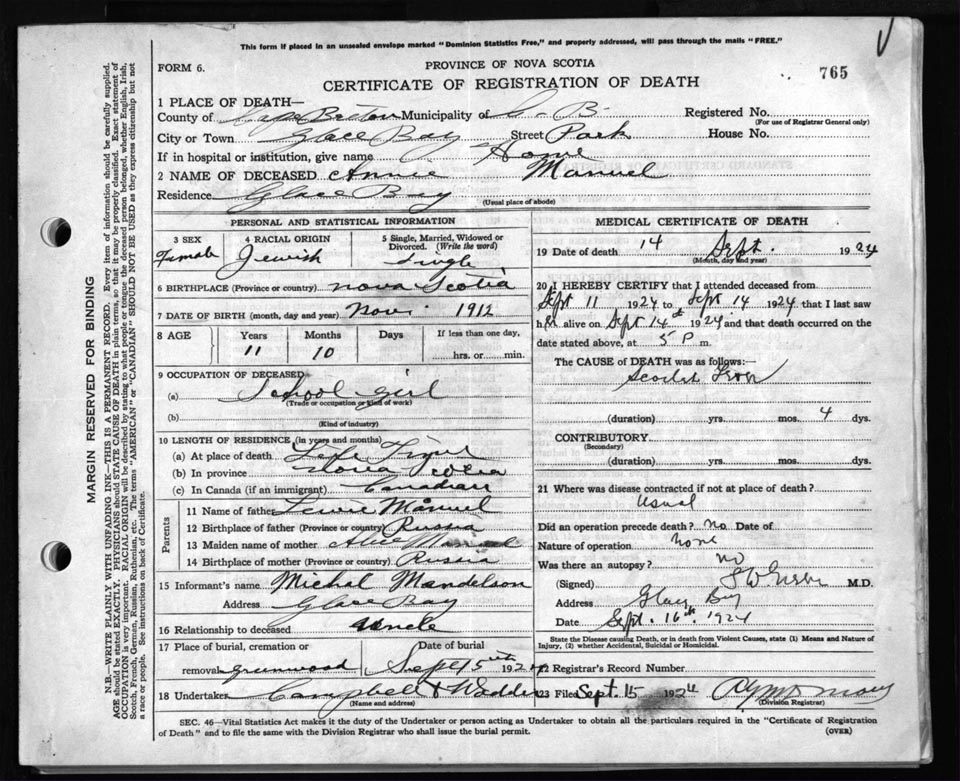 This form if placed in an unsealed envelope marked "Dominion Statistics Free," and properly addressed, will pass through the mails "FREE."
FORM 6.
PROVINCE OF NOVA SCOTIA
765
CERTIFICATE OF REGISTRATION OF DEATH
1 PLACE OF DEATH—
County of Cape Breton Municipality of C. B. Registered No.
(For use of Registrar General only)
City or Town Glace Bay Street Park House No.
If in hospital or institution, give name Home
2 NAME OF DECEASED Annie Manuel
Residence Glace Bay
(Usual place of abode)
PERSONAL AND STATISTICAL INFORMATION
3 SEX Female
4 RACIAL ORIGIN Jewish
5 Single, Married, Widowed or Divorced. (Write the word) Single
6 BIRTHPLACE (Province or country) Nova Scotia
7 DATE OF BIRTH (month, day and year) Nov. 1912
8 AGE Years Months Days If less than one day,
11 10 hrs. or min.
9 OCCUPATION OF DECEASED
(a) School girl
(Trade or occupation or kind of work)
(b)
(Kind of industry)
10 LENGTH OF RESIDENCE (in years and months)
(a) At place of death Life Time
(b) In province Nova Scotia
(c) In Canada (if an immigrant) Canadian
Parents
11 Name of father Manuel
12 Birthplace of father (Province or country) Russia
13 Maiden name of mother Alice
14 Birthplace of mother (Province or country) Russia
15 Informant's name Michal Mandelson
Address Glace Bay
16 Relationship to deceased Uncle
17 Place of burial, cremation or
removal Greenwood Sept 15th 1924
18 Undertaker Campbell &
(Name and address)
MEDICAL CERTIFICATE OF DEATH
19 Date of death 14 Sept. 1924
(Month, day and year)
20 I HEREBY CERTIFY that I attended deceased from
Sept 11 1924 to Sept 14 1924 that I last saw
h er alive on Sept 14th 1924 and that death occurred on the
date stated above, at 5 P m.
The CAUSE of DEATH was as follows:—
Scarlet Fever
(duration) yrs. mos. 4 dys.
CONTRIBUTORY
(Secondary)
(duration) yrs. mos. dys.
21 Where was disease contracted if not at place of death?
Usual
Did an operation precede death? No Date of
Nature of operation None
Was there an autopsy? No
(Signed) M.D.
Address Glace Bay
Date Sept. 16th. 1924
State the Disease causing Death, or in death from Violent Causes, state (1) Means and Nature of
Injury, (2) whether Accidental, Suicidal or Homicidal.
22 Registrar's Record Number
23 Filed Sept. 15 1924
(Division Registrar)
SEC. 46—Vital Statistics Act makes it the duty of the Undertaker or person acting as Undertaker to obtain all the particulars required in the "Certificate of Registration
of Death" and to file the same with the Division Registrar who shall issue the burial permit.
(OVER)
MARGIN RESERVED FOR BINDING
N.B.—WRITE PLAINLY WITH UNFADING INK—THIS IS A PERMANENT RECORD. Every item of information should be carefully supplied.
AGE should be stated EXACTLY. PHYSICIANS should STATE CAUSE OF DEATH in plain terms, so that it may be properly classified. Exact statement of
OCCUPATION is very important. RACIAL ORIGIN will be described by stating to what people or tongue the deceased person belonged, whether English, Irish,
Scotch, French, German, Russian, Ruthenian, etc. The terms "AMERICAN" or "CANADIAN" SHOULD NOT BE USED as they express citizenship but not
a race or people. See instructions on back of Certificate.